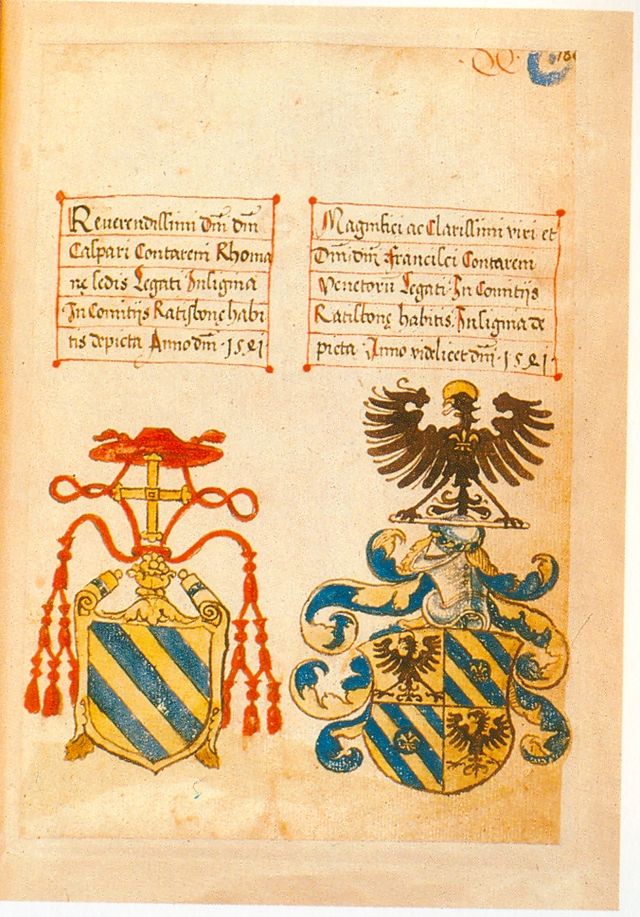 Reverendissimi Dm̄ dm̄
Caspari Contareni Rhoma
nę sedis Legati Insignia
In Comitijs Ratisbonę habi
tis depicta Anno dm̄ · 1541 ·
Magnifici ac Clarissimi viri et
Dm̄ dm̄ Francisci Contareni
Venetorū Legati In Comitijs
Ratisbonę habitis Insignia de
picta Anno videlicet dm̄ · 1541 ·